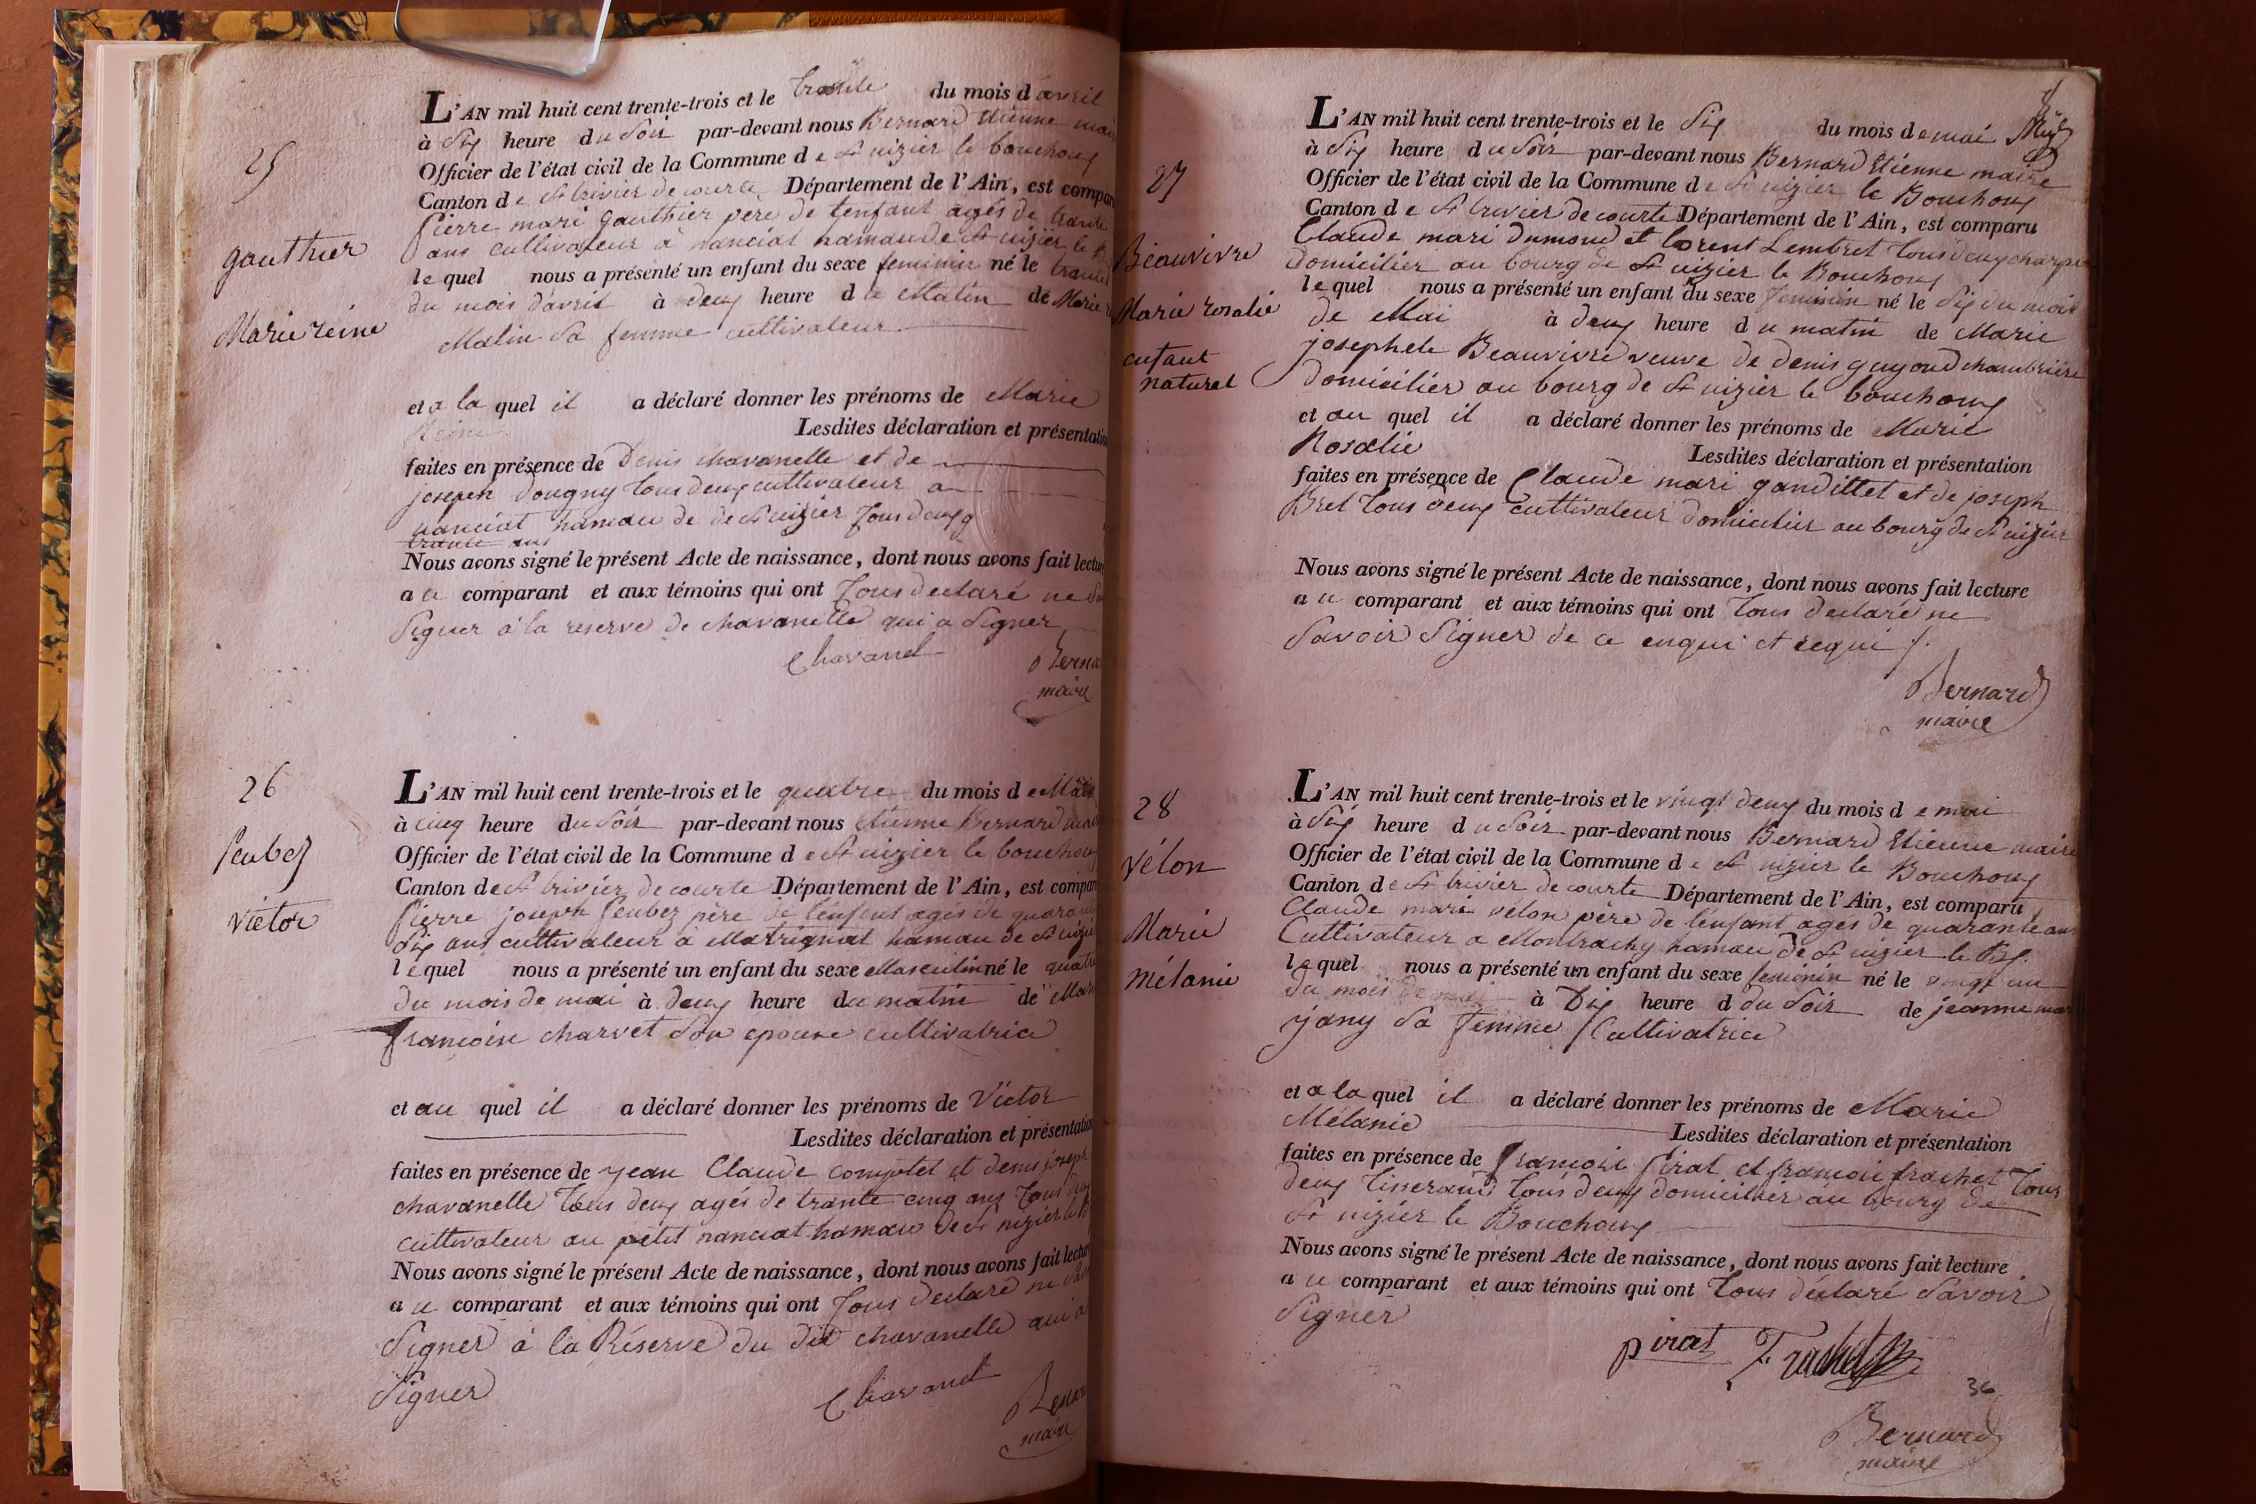 25
gauthier
Marie reine
L'AN mil huit cent trente-trois et le trante du mois d avril
à Six heure du Soir par-devant nous Bernard Etienne mai
Officier de l'état civil de la Commune de St nizier le bouchoux
Canton de St trivier de courte Département de l'Ain, est compar
Pierre mari gauthier père de l'enfant agés de trante
ans cultivateur à nanciat hamau de St nizier le B
le quel nous a présenté un enfant du sexe feminin né le trante
du mois d'avril à deux heure du Matin de Marie
Matin Sa femme cultivateur
et a la quel il a déclaré donner les prénoms de Marie
Reine Lesdites déclaration et présentation
faites en présence de Denis chavanelle et de
joseph Dougny tous deux cultivateur a
nanciat hamau de de St nizier tous deux g
trante ans
Nous avons signé le présent Acte de naissance, dont nous avons fait lecture
au comparant et aux témoins qui ont Tous declaré ne Sa
Signer à la reserve de chavanelle qui a Signer
Chavanel Berna
maire
26
Peubez
Victor
L'AN mil huit cent trente-trois et le quatre du mois de Mai
à cinq heure du Soir par-devant nous Etienne Bernard mai
Officier de l'état civil de la Commune de St nizier le bouchoux
Canton de St trivier de courte Département de l'Ain, est compar
Pierre joseph Peubez père de l'enfent agés de quarante
Six ans cultivateur à Matrignat hamau de St nizier
le quel nous a présenté un enfant du sexe Masculin né le quatre
du mois de mai à deux heure du matin de Marie
françoise charvet Son epouse cultivatrice
et au quel il a déclaré donner les prénoms de Victor
Lesdites déclaration et présentation
faites en présence de Jean Claude compotet et denis joseph
chavanelle Tous deux agés de trante cinq ans Tous deux
cultivateur au petit nanciat hamau de St nizier le B
Nous avons signé le présent Acte de naissance, dont nous avons fait lecture
au comparant et aux témoins qui ont Tous declaré ne Savoir
Signer à la Réserve du dit chavanelle qui a
Signer
Chavanel Bernar
maire
27
Beauvivre
Marie rosalie
enfant
naturel
L'AN mil huit cent trente-trois et le Six du mois de mai
à Six heure du Soir par-devant nous Bernard Etienne maire
Officier de l'état civil de la Commune de St nizier le Bouchoux
Canton de St trivier de courte Département de l'Ain, est comparu
Claude mari dumond et lorent Lembret tous deux charpe
domicilier au bourg de St nizier le Bouchoux
le quel nous a présenté un enfant du sexe feminin né le Six du mois
de Mai à deux heure du matin de Marie
josephete Beauvivre veuve de denis guyond chambrière
domicilier au bourg de St nizier le bouchoux
et au quel il a déclaré donner les prénoms de Marie
Rosalie Lesdites déclaration et présentation
faites en présence de Claude mari gandillet et de joseph
Bret tous deux cultivateur domicilier au bourg de St nizier
Nous avons signé le présent Acte de naissance, dont nous avons fait lecture
au comparant et aux témoins qui ont Tous declaré ne
Savoir Signer de ce enqui et requi
Bernard
maire
28
Vélon
Marie
Mélanie
L'AN mil huit cent trente-trois et le vingt deux du mois de mai
à Six heure du Soir par-devant nous Bernard Etienne maire
Officier de l'état civil de la Commune de St nizier le Bouchoux
Canton de St trivier de courte Département de l'Ain, est comparu
Claude mari vélon père de l'enfant agés de quarante ans
Cultivateur a Montrachy hamau de St nizier le B
le quel nous a présenté un enfant du sexe feminin né le vingt un
du mois de mai à Dix heure d du Soir de jeanne mar
jany Sa femme Cultivatrice
et a la quel il a déclaré donner les prénoms de Marie
Mélanie Lesdites déclaration et présentation
faites en présence de françois Pirat et françois frachet Tous
deux Tisserand tous deux domicilier au bourg de
St nizier le Bouchoux
Nous avons signé le présent Acte de naissance, dont nous avons fait lecture
au comparant et aux témoins qui ont Tous déclaré Savoir
Signer
pirat Frachet
36
Bernard
maire